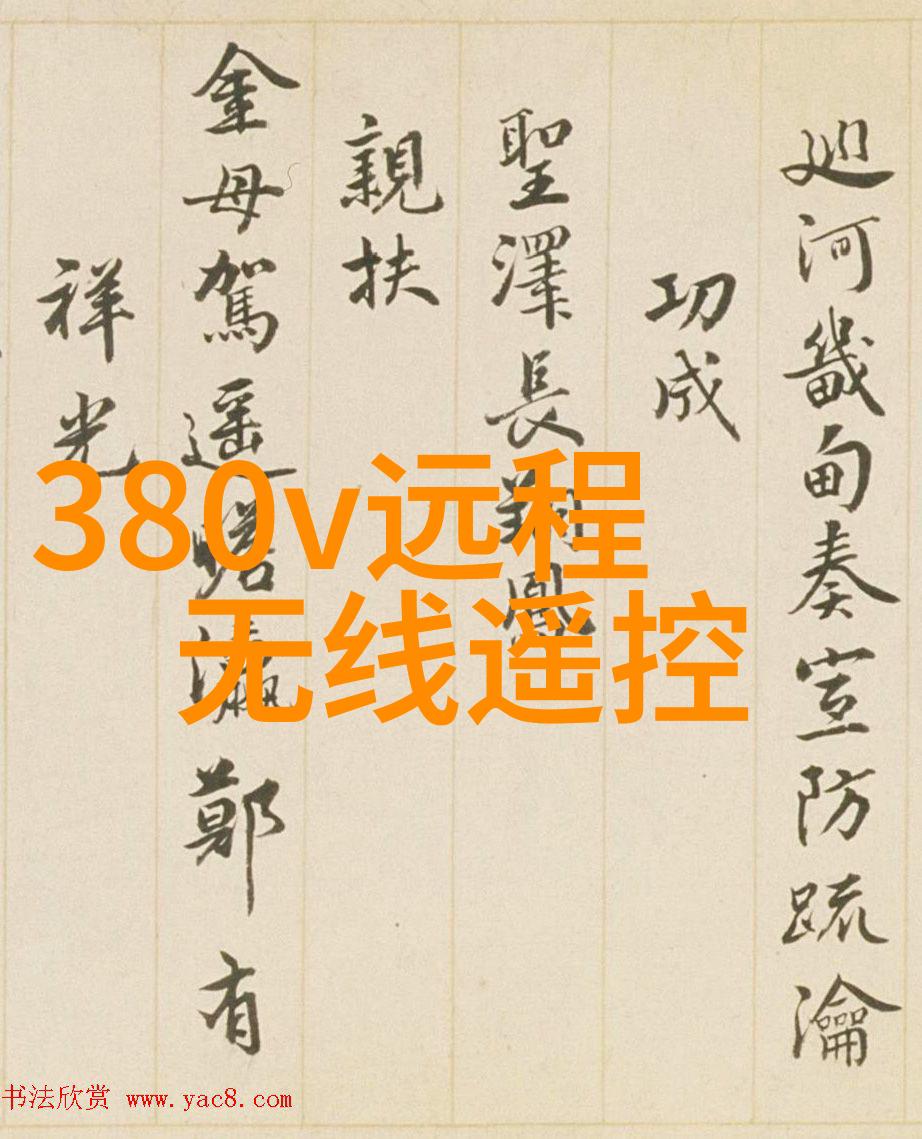 巡河畿甸奏宣防疏瀹
功成
聖澤長翔鳳
親扶
金母駕遥瞻瀛鄭有
祥光
380v远程
无线遥控
书法欣赏 www.yac8.com